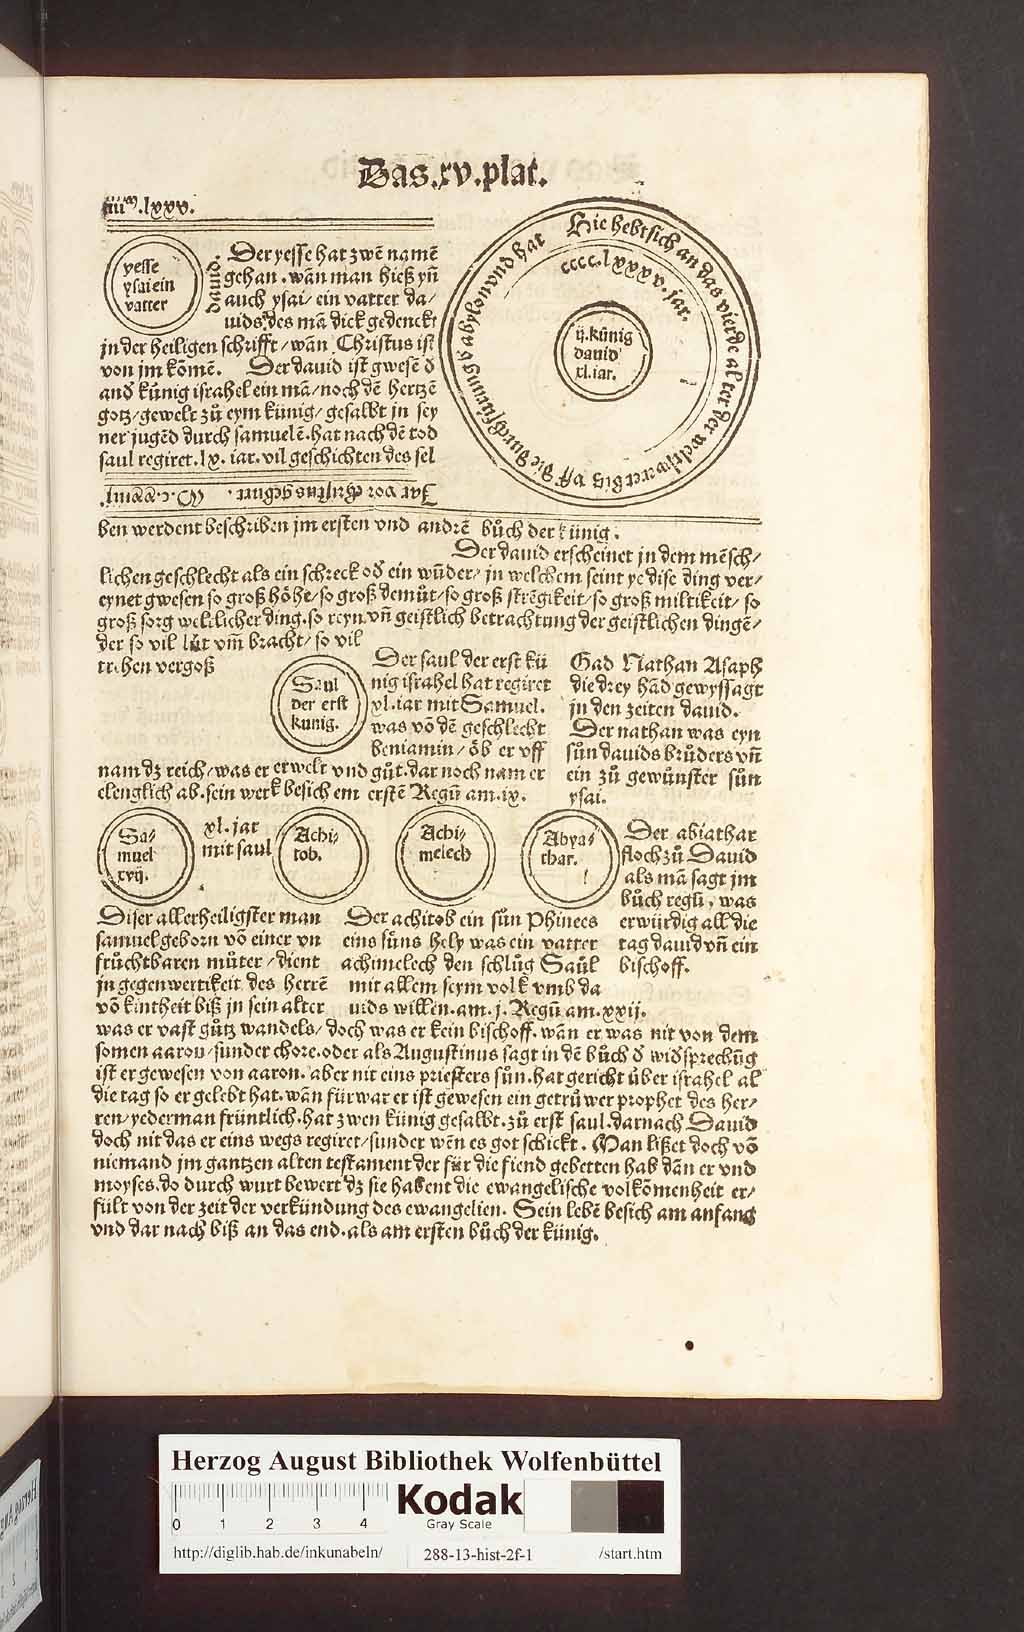 Das.xv.plat.
.lxxv.
yesse
ysai ein
vatter
dauid.
Der yesse hat zwē namē
gehan . wān man hieß yn̄
auch ysai / ein vatter da/
uids. des mā dick gedenckt
jn der heiligen schrifft / wān Christus ist
von jm kōmē. Der dauid ist gwesē d̄
and̄ kůnig israhel ein mā / noch dē hertzē
gotz / gewelt zů eym künig / gesalbt jn sey
ner jugēd durch samuelē. hat nach dē tod
saul regiret. lx. iar. vil geschichten des sel
Jar vor christus geburt .
Hie hebt sich an das vierde alter der welt / weret biß vff die durchfürung ď abylon vnd hat
cccc.lxxxv.jar.
ij.künig
dauid
xl.iar.
ben werdent beschriben jm ersten vnd andrē bůch der künig.
Der dauid erscheinet jn dem mēsch/
lichen geschlecht als ein schreck od̄ ein wūder / jn welchem seint ye dise ding ver/
eynet gwesen so groß hőhe / so groß demůt / so groß strēgikeit / so groß miltikeit / so
groß sorg weltlicher ding. so reyn vn̄ geistlich betrachtung der geistlichen dingē /
der so vil lüt vm̄ bracht / so vil
trehen vergoß
Saul
der erst
kunig.
Der saul der erst kü
nig israhel hat regiret
xl. iar mit Samuel.
was vō dē geschlecht
beniamin / ōb er vff
nam dz reich / was er erwelt vnd gůt. dar noch nam er
elenglich ab. sein werk besich em erstē Regū am. ix.
Gad Nathan Asaph
die drey hād gewyssagt
jn den zeiten dauid.
Der nathan was eyn
sůn dauids brůders vn̄
ein zů gewünster sůn
ysai.
Sa-
muel
xvij.
xl. jar
mit saul
Achi-
tob.
Achi-
melech
Abya-
thar.
Der abiathar
floch zů Dauid
als mā sagt jm
bůch regū, was
erwürdig all die
tag dauid vn̄ ein
bischoff.
Diser allerheiligster man
samuel geborn vō einer vn
frůchtbaren můter / dient
jn gegenwertikeit des herrē
vō kintheit biß jn sein alter
Der achitob ein sůn Phinees
eins sůns hely was ein vatter
achimelech den schlůg Saůl
mit allem seym volk vmb da
uids willēn. am. j. Regū am. xxij.
was er vast gůtz wandels / doch was er kein bischoff. wān er was nit von dem
somen aaron / sunder chore. oder als Augustinus sagt in dē bůch d̄ wid̄sprechūg
ist er gewesen von aaron. aber nit eins priesters sůn. hat gericht über israhel al
die tag so er gelebt hat. wān fürwar er ist gewesen ein getrůwer prophet des her/
ren / yederman früntlich. hat zwen künig gesalbt. zů erst saul. darnach Dauid
doch nit das er eins wegs regiret / sunder wēn es got schickt. Man lißet doch vō
niemand jm gantzen alten testament der für die fiend gebetten hab dān er vnd
moyses. do durch wurt bewert dz sie habent die ewangelische volkōmenheit er/
fült von der zeit der verkündung des ewangelien. Sein lebē besich am anfang
vnd dar nach biß an das end. als am ersten bůch der künig.
Herzog August Bibliothek Wolfenbüttel
0 1 2 3 4
Kodak
Gray Scale
http://diglib.hab.de/inkunabeln/ 288-13-hist-2f-1 /start.htm